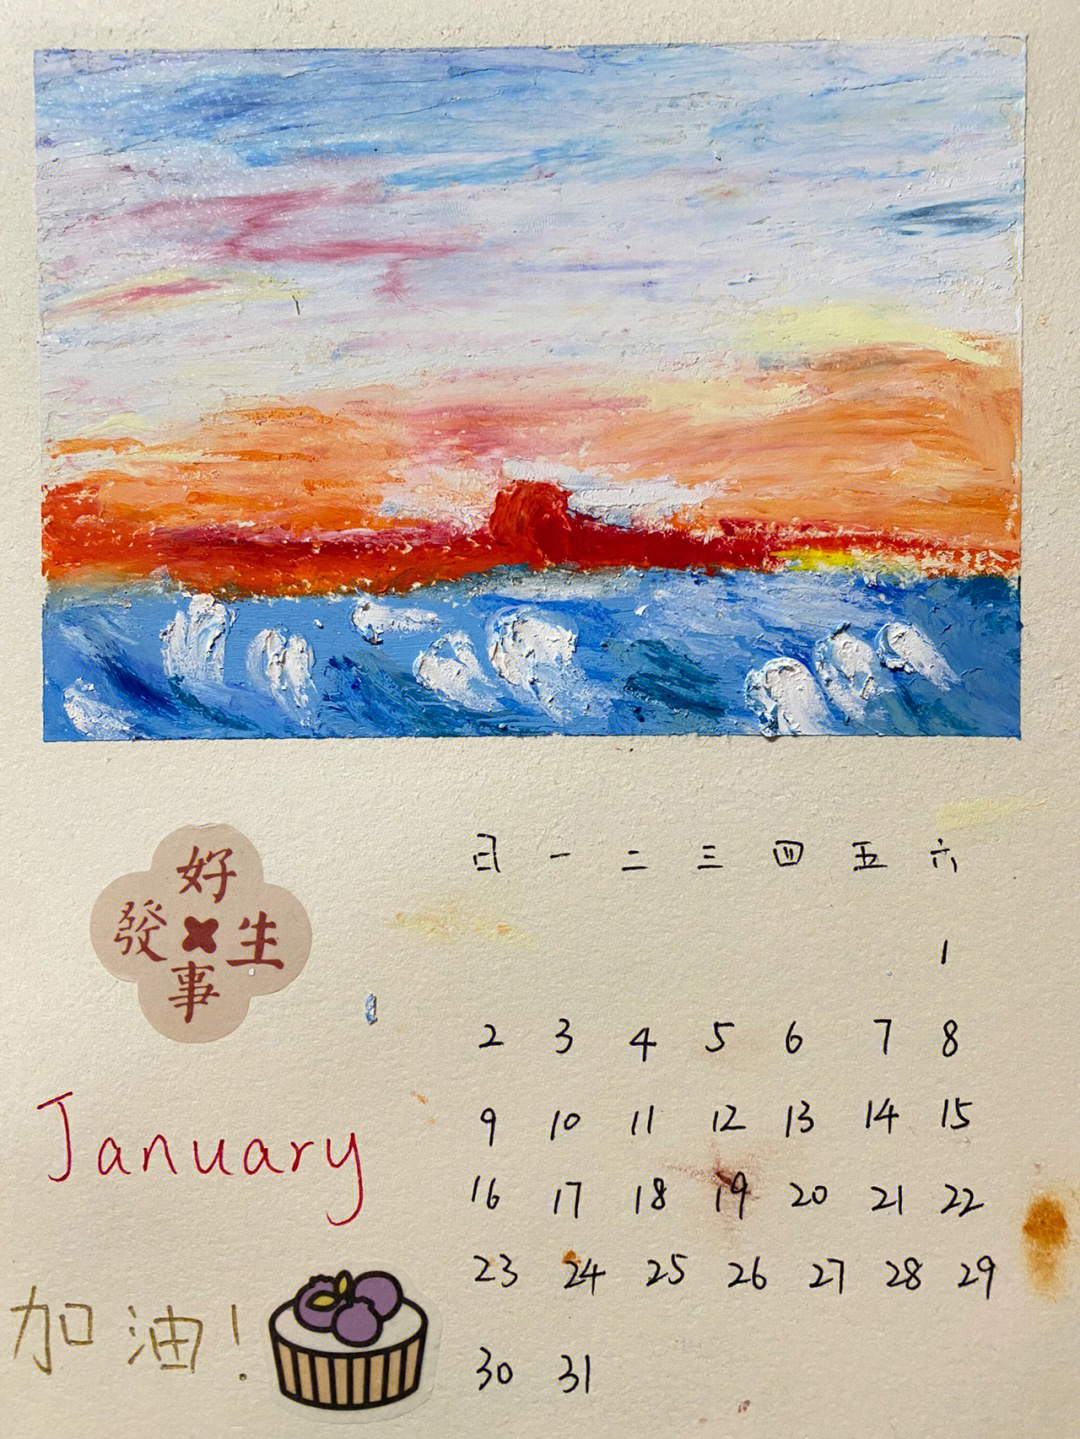 好
發 生
事
January
加油!
日 一 二 三 四 五 六
1
2 3 4 5 6 7 8
9 10 11 12 13 14 15
16 17 18 19 20 21 22
23 24 25 26 27 28 29
30 31